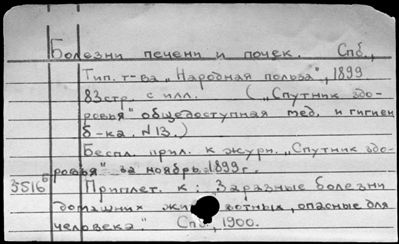 Болезни печени и почек. Спб.,
Тип. т-ва „Народная польза", 1899.
83 стр. с илл. („Спутник здо-
ровья" общедоступная мед. и гигиен
б-ка. N13.)
Беспл. прил. к журн. „Спутник здо-
ровья" за ноябрь 1899 г.
3516 Приплет. к: Заразные болезни
домашних животных, опасные для
человека." Спб, 1900.